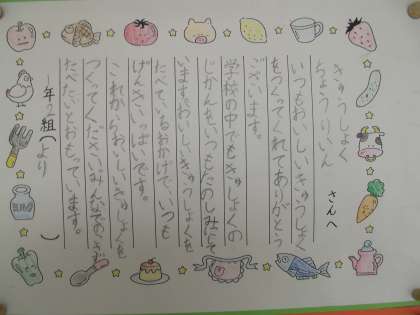 きゅうしょく
ちょうりいん さんへ
いつもおいしいきゅうしょく
をつくってくれてありがとう
ございます。
学校の中でもきゅうしょくの
じかんをいつもたのしみにして
います。おいしいきゅうしょくを
たべているおかげで、いつも
げんきいっぱいです。
これからもおいしいきゅうしょくを
つくってください。みんなでのこさず
たべたいとおもっています。
一年2組( より )